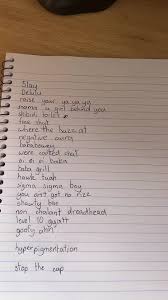 Slay
Delulu
raise your ya ya ya
mama a girl behind you
skibidi toilet
fine shyt
where the huzz at
negative aura
bababooey
were corked chat
oi oi oi baka
baby grill
hawk tuah
sigma sigma boy
you aint got no rizz
shawty bae
non chalant dreadhead
level 10 gyatt
goofy ahh
hyperpigmentation
stop the cap